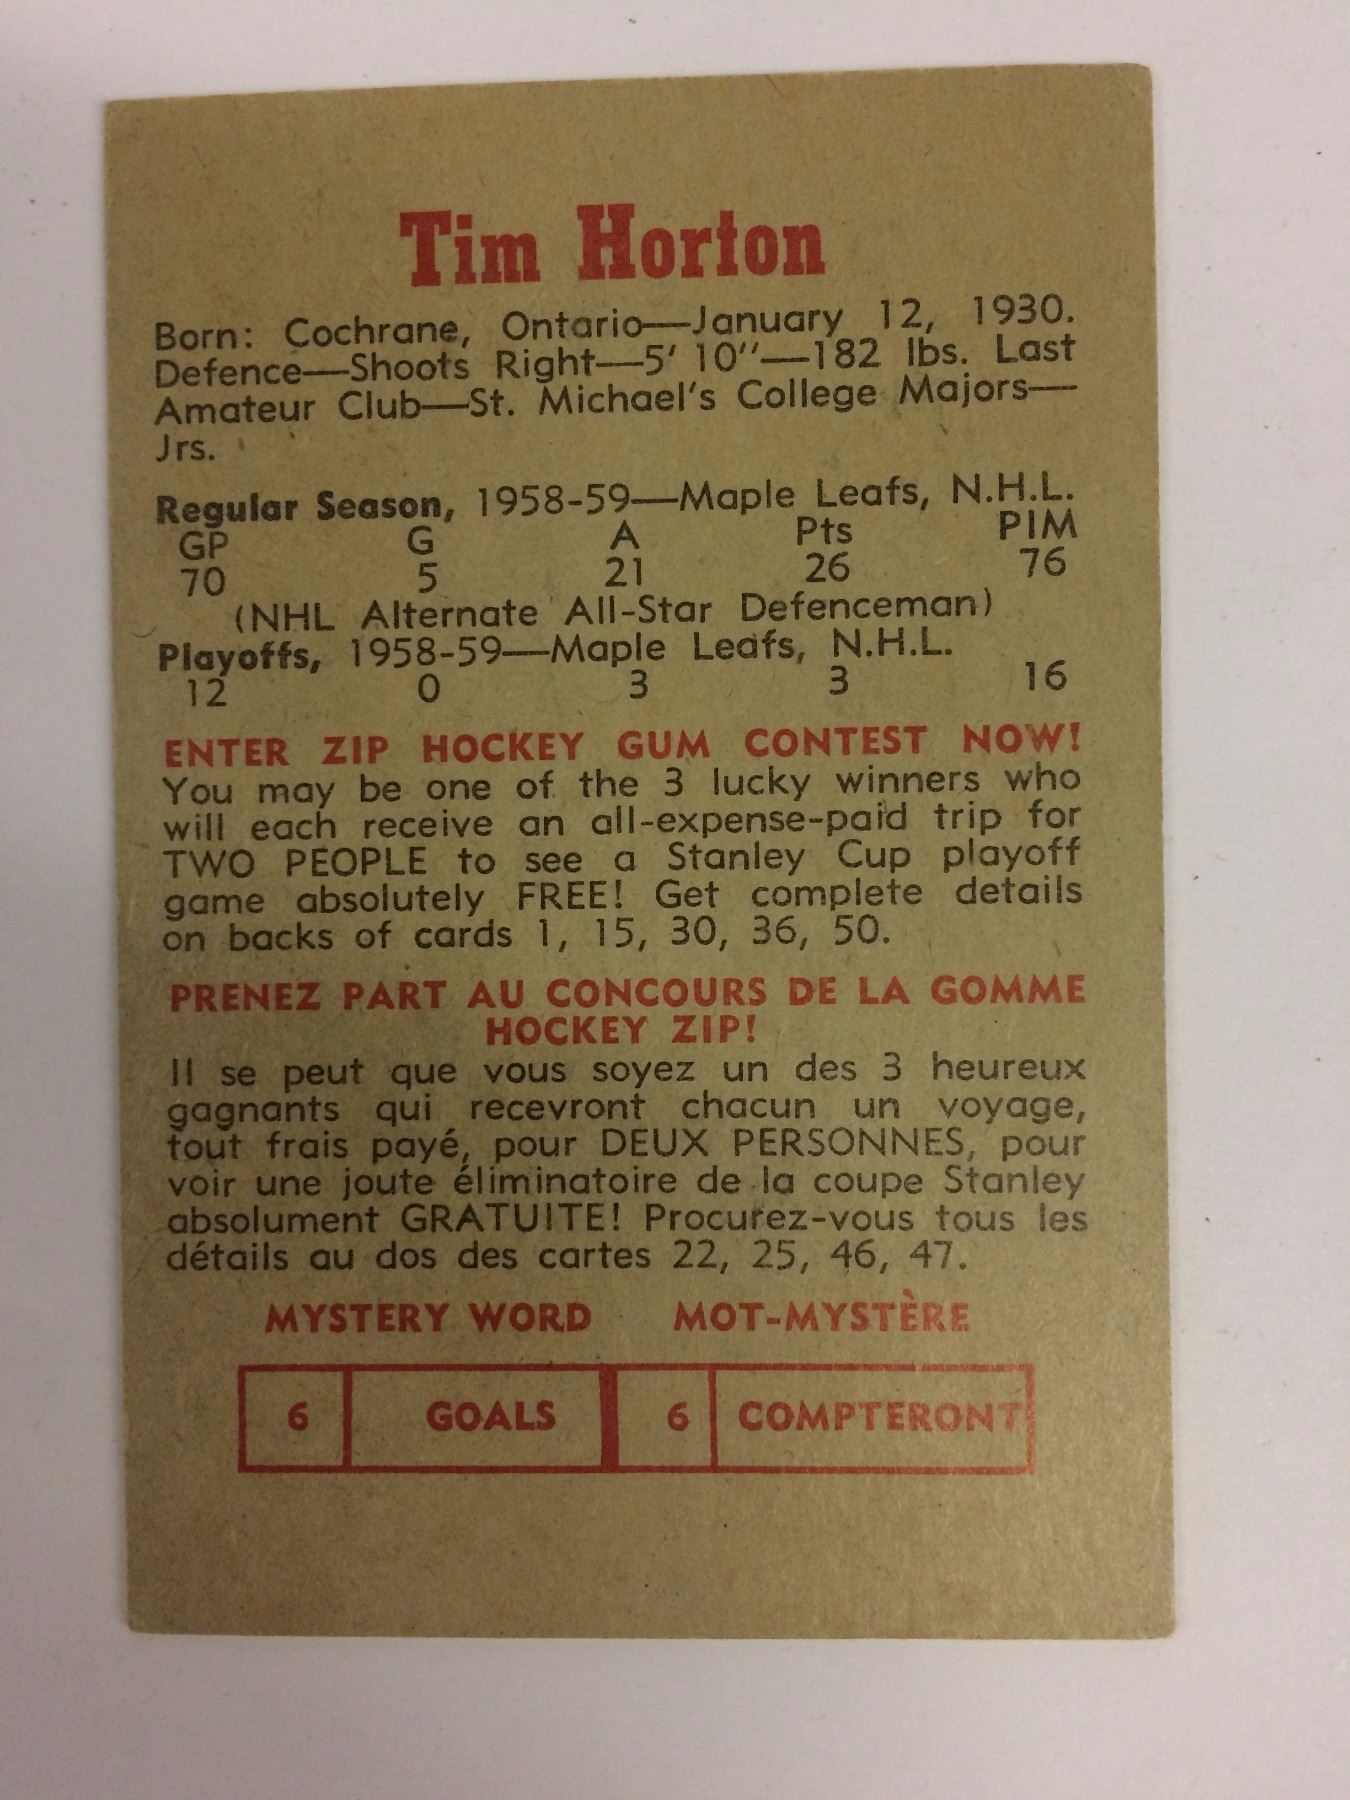 Tim Horton
Born: Cochrane, Ontario—January 12, 1930.
Defence—Shoots Right—5' 10''—182 lbs. Last
Amateur Club—St. Michael's College Majors—
Jrs.
Regular Season, 1958-59—Maple Leafs, N.H.L.
GP G A Pts PIM
70 5 21 26 76
(NHL Alternate All-Star Defenceman)
Playoffs, 1958-59—Maple Leafs, N.H.L.
12 0 3 3 16
ENTER ZIP HOCKEY GUM CONTEST NOW!
You may be one of the 3 lucky winners who
will each receive an all-expense-paid trip for
TWO PEOPLE to see a Stanley Cup playoff
game absolutely FREE! Get complete details
on backs of cards 1, 15, 30, 36, 50.
PRENEZ PART AU CONCOURS DE LA GOMME
HOCKEY ZIP!
Il se peut que vous soyez un des 3 heureux
gagnants qui recevront chacun un voyage,
tout frais payé, pour DEUX PERSONNES, pour
voir une joute éliminatoire de la coupe Stanley
absolument GRATUITE! Procurez-vous tous les
détails au dos des cartes 22, 25, 46, 47.
MYSTERY WORD MOT-MYSTÈRE
6 GOALS 6 COMPTERONT